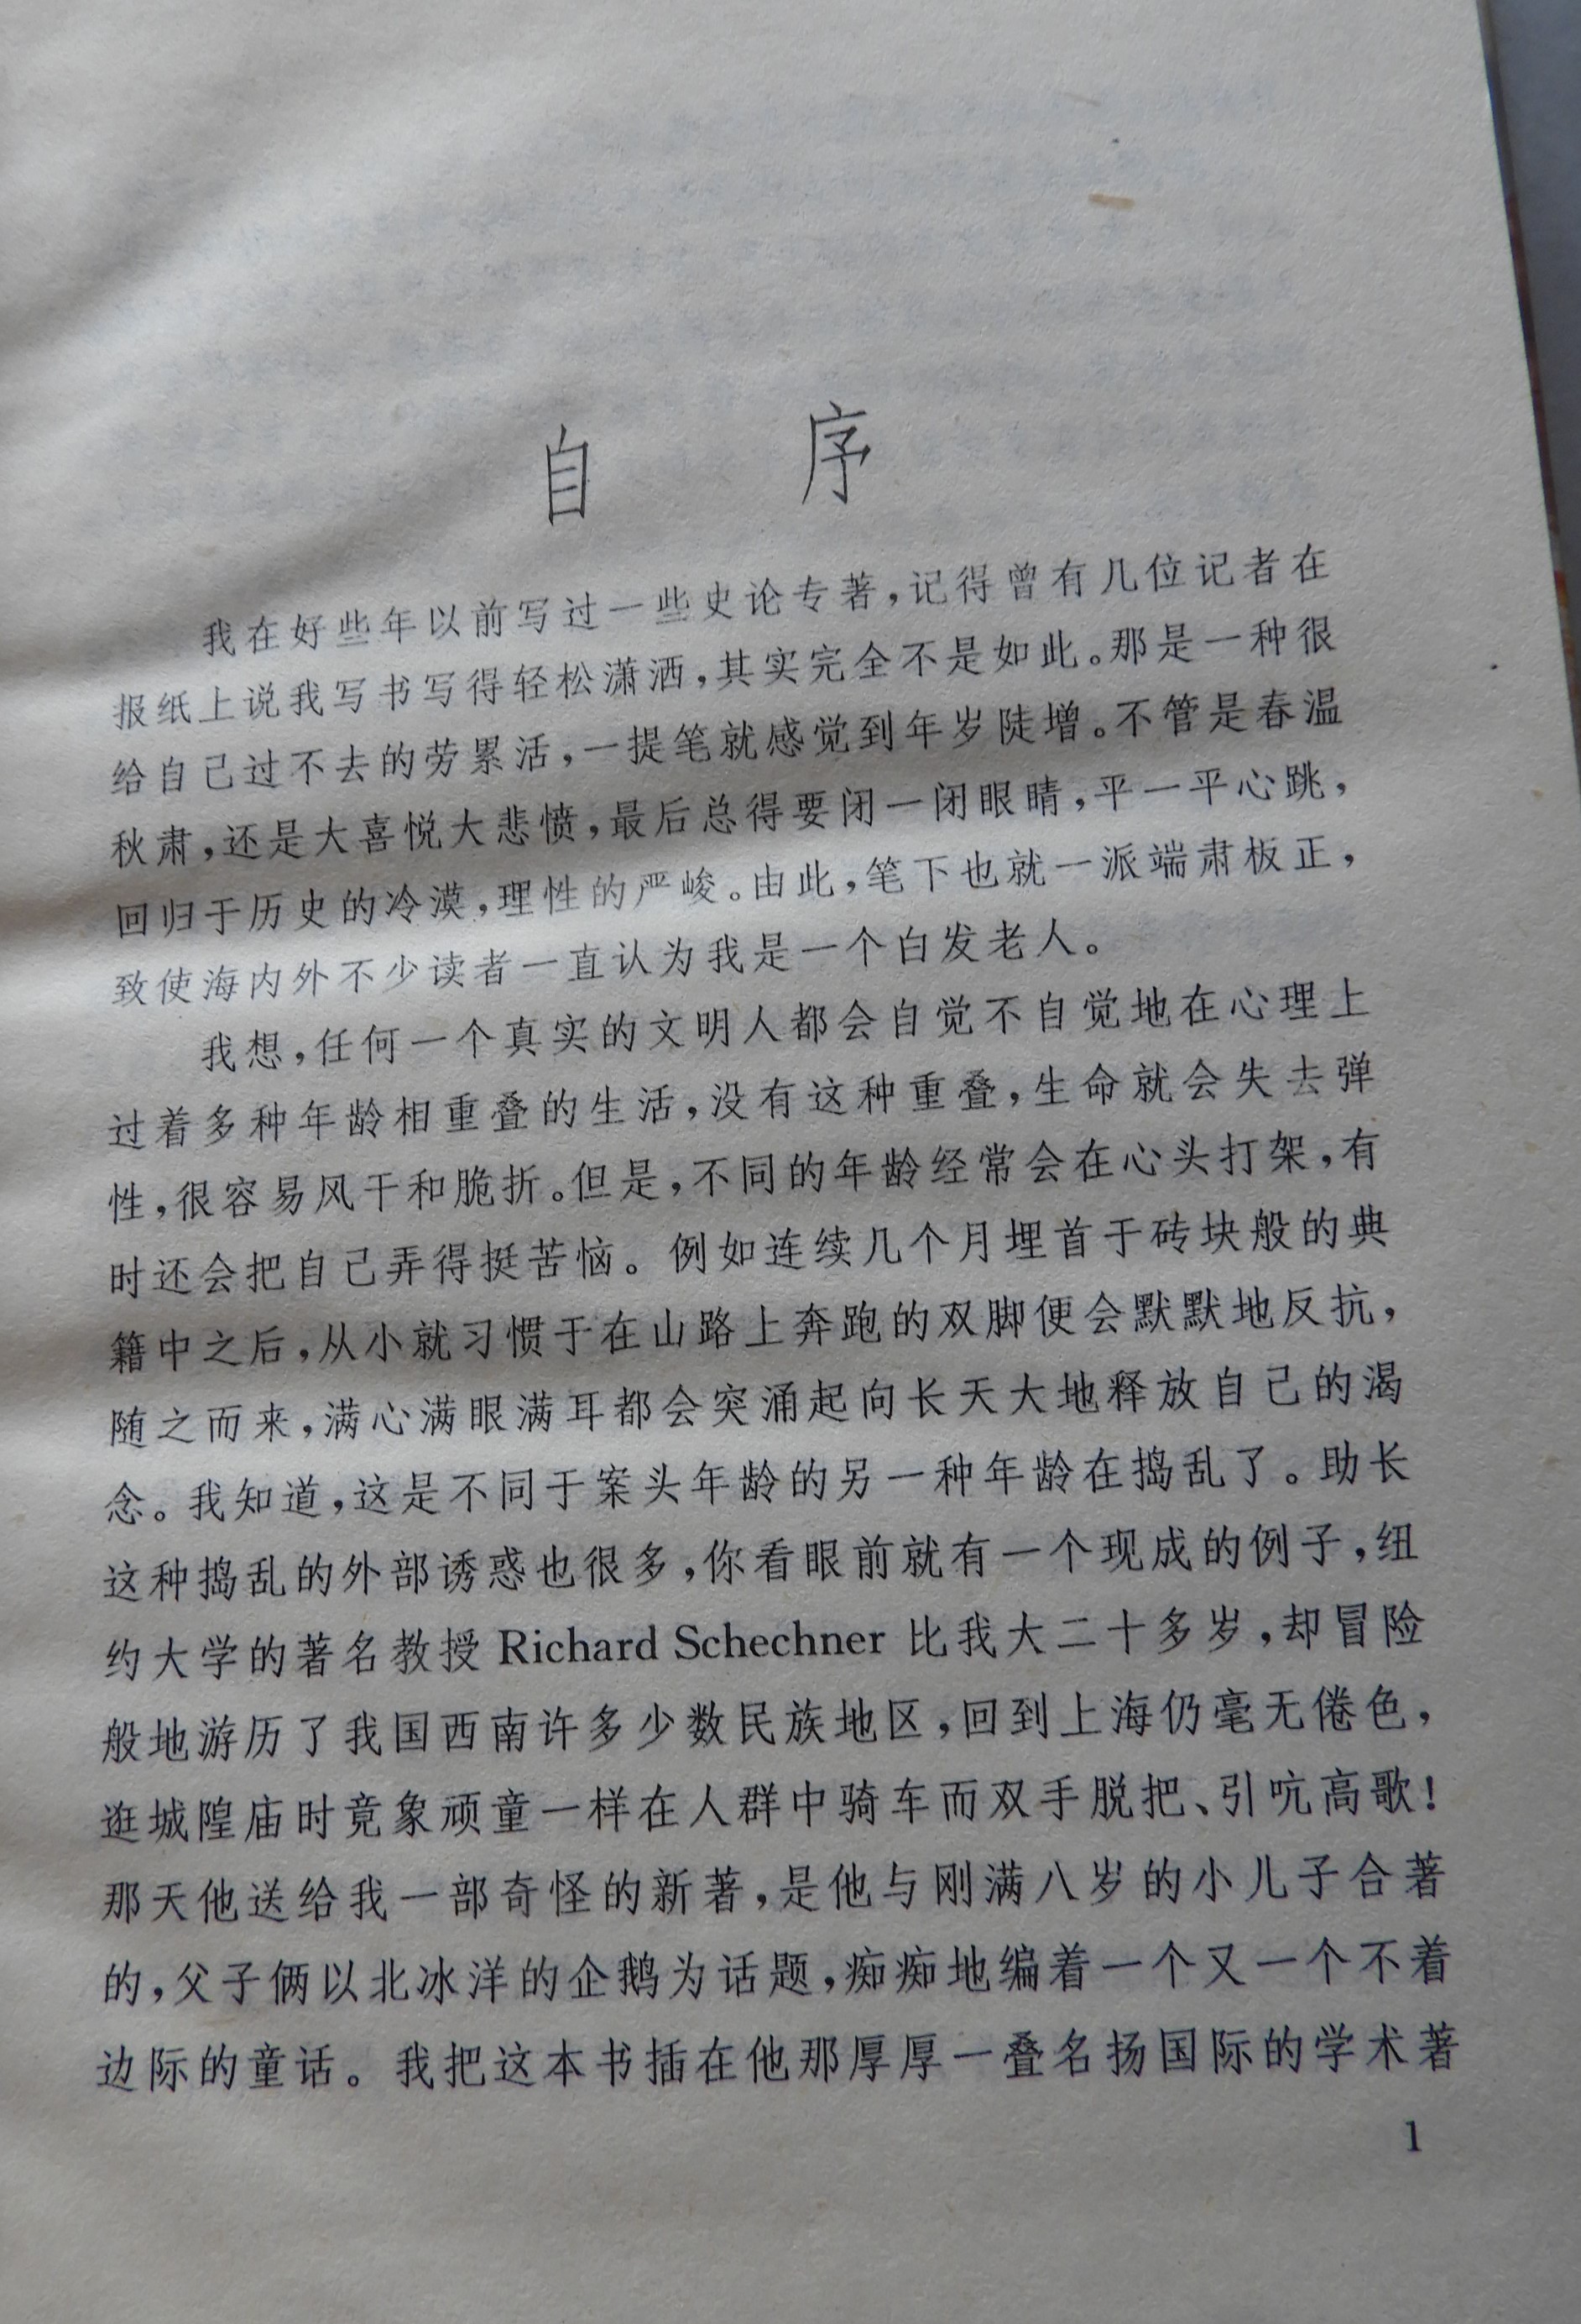 自 序
我在好些年以前写过一些史论专著，记得曾有几位记者在
报纸上说我写书写得轻松潇洒，其实完全不是如此。那是一种很
给自己过不去的劳累活，一提笔就感觉到年岁陡增。不管是春温
秋肃，还是大喜悦大悲愤，最后总得要闭一闭眼睛，平一平心跳，
回归于历史的冷漠，理性的严峻。由此，笔下也就一派端肃板正，
致使海内外不少读者一直认为我是一个白发老人。
我想，任何一个真实的文明人都会自觉不自觉地在心理上
过着多种年龄相重叠的生活，没有这种重叠，生命就会失去弹
性，很容易风干和脆折。但是，不同的年龄经常会在心头打架，有
时还会把自己弄得挺苦恼。例如连续几个月埋首于砖块般的典
籍中之后，从小就习惯于在山路上奔跑的双脚便会默默地反抗，
随之而来，满心满眼满耳都会突涌起向长天大地释放自己的渴
念。我知道，这是不同于案头年龄的另一种年龄在捣乱了。助长
这种捣乱的外部诱惑也很多，你看眼前就有一个现成的例子，纽
约大学的著名教授 Richard Schechner 比我大二十多岁，却冒险
般地游历了我国西南许多少数民族地区，回到上海仍毫无倦色，
逛城隍庙时竟象顽童一样在人群中骑车而双手脱把、引吭高歌！
那天他送给我一部奇怪的新著，是他与刚满八岁的小儿子合著
的，父子俩以北冰洋的企鹅为话题，痴痴地编着一个又一个不着
边际的童话。我把这本书插在他那厚厚一叠名扬国际的学术著
1